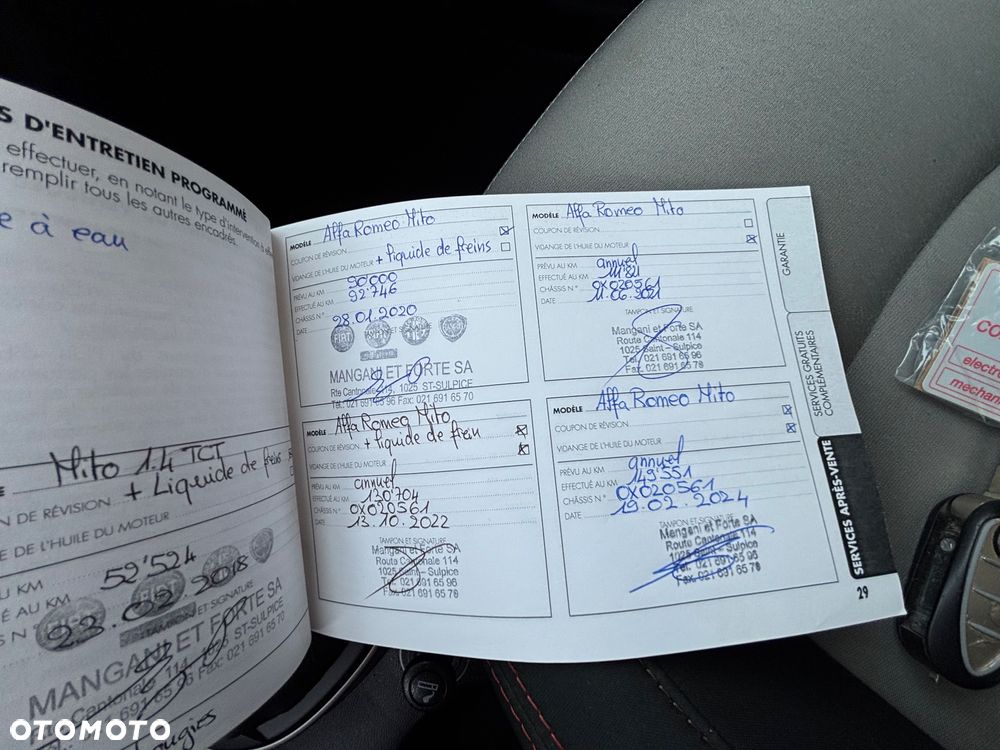 S D'ENTRETIEN PROGRAMMÉ
effectuer, en notant le type d'intervention à
remplir tous les autres encadrés.
e à eau
Mito 1.4 TCT
N DE RÉVISION + Liquide de freins
E DE L'HUILE DU MOTEUR
U KM 52'524
É AU KM 22.02.2018
S N°
TAMPON ET SIGNATURE
MANGANI ET FORTE SA
Cantonale 114, 1025 ST-SULPICE
Fax: 021 691 65 70
MODÈLE Alfa Romeo Mito
COUPON DE RÉVISION
VIDANGE DE L'HUILE DU MOTEUR + liquide de freins
PRÉVU AU KM 90'000
EFFECTUÉ AU KM 92'746
CHÂSSIS N°
DATE 28.01.2020
FIAT
MANGANI ET FORTE SA
Rte Cantonale 114, 1025 ST-SULPICE
Tél.: 021 691 65 96 Fax: 021 691 65 70
MODÈLE Alfa Romeo Mito
COUPON DE RÉVISION + liquide de frein
VIDANGE DE L'HUILE DU MOTEUR
PRÉVU AU KM annuel
EFFECTUÉ AU KM 130'704
CHÂSSIS N° 0X020561
DATE 13.10.2022
TAMPON ET SIGNATURE
Mangani et Forte SA
Route Cantonale 114
1025 Saint-Sulpice
Tél. 021 691 65 96
Fax. 021 691 65 70
MODÈLE Alfa Romeo Mito
COUPON DE RÉVISION
VIDANGE DE L'HUILE DU MOTEUR
PRÉVU AU KM annuel
EFFECTUÉ AU KM
CHÂSSIS N° 0X020561
DATE 11.06.2021
TAMPON ET SIGNATURE
Mangani et Forte SA
Route Cantonale 114
1025 Saint-Sulpice
Tél. 021 691 65 96
Fax. 021 691 65 70
MODÈLE Alfa Romeo Mito
COUPON DE RÉVISION
VIDANGE DE L'HUILE DU MOTEUR
PRÉVU AU KM annuel
EFFECTUÉ AU KM 149'551
CHÂSSIS N° 0X020561
DATE 19.02.2024
TAMPON ET SIGNATURE
Mangani et Forte SA
Route Cantonale 114
1025 Saint-Sulpice
Tél. 021 691 65 96
Fax. 021 691 65 70
GARANTIE
SERVICES GRATUITS
COMPLÉMENTAIRES
SERVICES APRÈS-VENTE
29
CO
electro
mechani
OTOMOTO